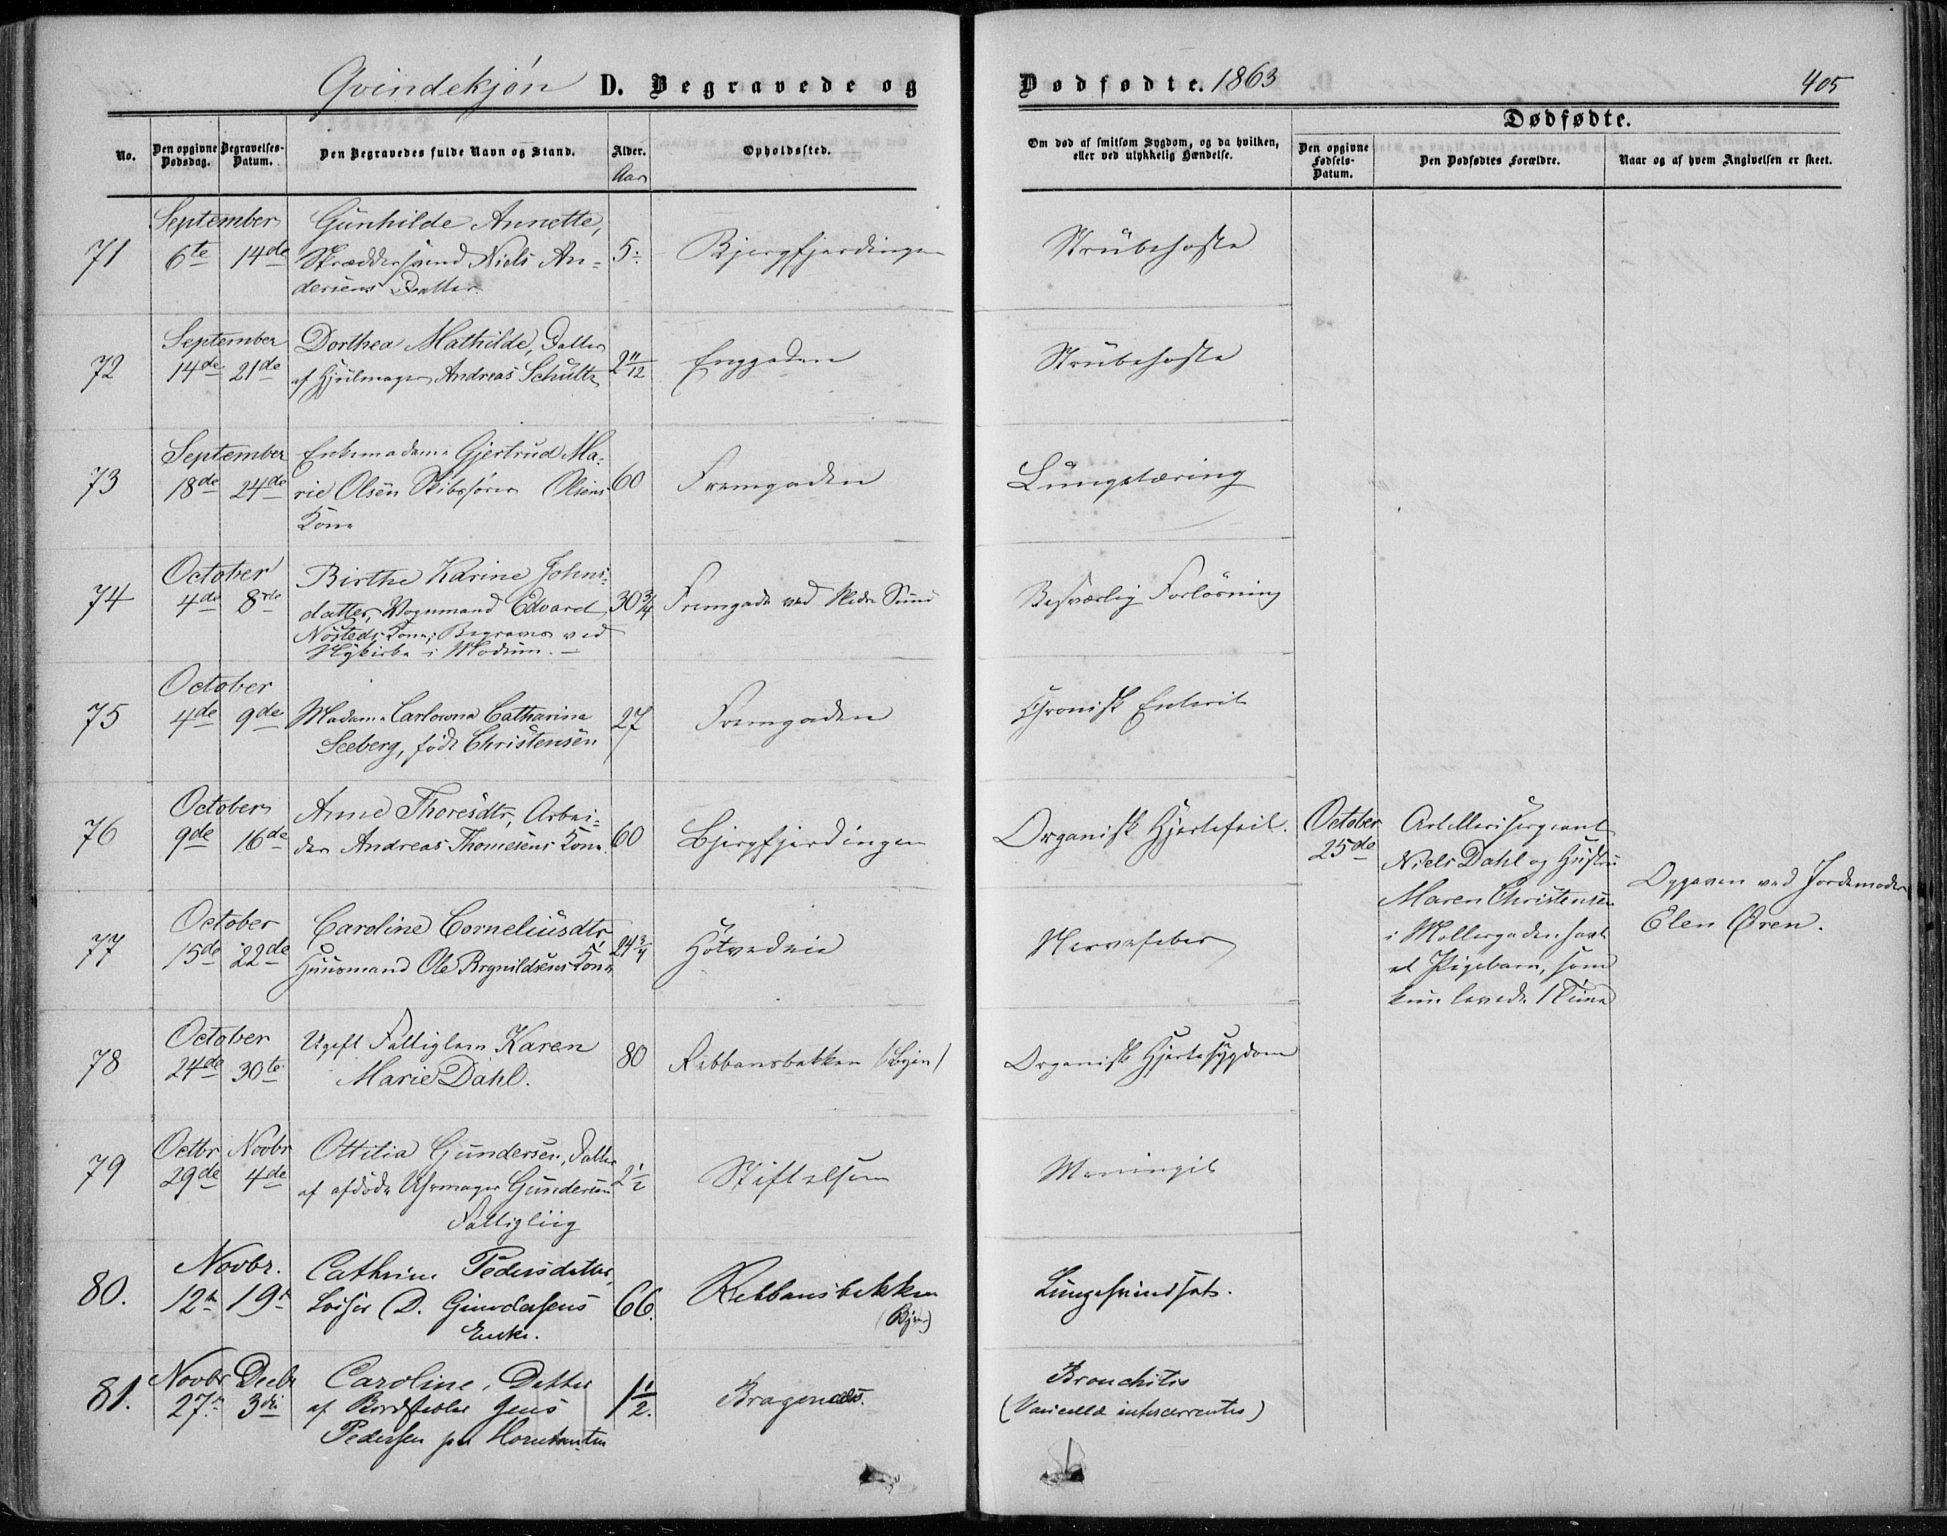 Qvindekjøn D. Begravede og
Dødfødte. 1863
405
No. Den opgivne Dødsdag. Begravelses-Datum. Den Begravedes fulde Navn og Stand. Alder. Opholdssted.
Aar
Om død af smitsom Sygdom, og da hvilken, eller ved ulykkelig Hændelse.
Dødfødte.
Den opgivne Fødsels-Datum. Den Dødfødtes Forældre. Naar og af hvem Angivelsen er skeet.
September Gunhilde Annette,
71 6te 14de Skræddersvend Niels An- 5 Bjergfjerdingen Strubehoste
dersens Datter.
September Dorthea Mathilde, Datter
72 14de 21de af Hjulmager Andreas Schultz 2 11/12 Enggaden Strubehoste
September Enkemadame Gjertrud Ma-
73 18de 24de rie Olsen Skibsfører Olsens 60 Fremgaden Lungetæring
Kone
October Birthe Karine Johns-
74 4de 8de datter, Vognmand Edvard 30 3/4 Fremgade ved Nedre Sund Besværlig Forløsning
Nøsteds Kone; Begraves ved
Nykirke i Modum. –
October
75 4de 9de Madame Carlowna Catharina 27 Fremgaden Chronisk Enterit
Seeberg, født Christensen
October Anne Thoresdtr, Arbei-
76 9de 16de der Andreas Thomesens Kone 60 Bjergfjerdingen Organisk Hjertefeil.
October Caroline Corneliusdtr,
77 15de 22de Huusmand Ole Brynildsens Kone 24 3/4 Hotvedeie Nervefeber
October Ugift Fattiglem Karen
78 24de 30te Marie Dahl. 80 Ribbansbakken (Byen) Organisk Hjertesygdom
Octbr Novbr Ottilia Gundersen, Datter
79 29de 4de af afdøde Uhrmager Gundersen 2 1/2 Stiftelsen Meningit
Fattigliig
Novbr. Cathrine Pedersdatter,
80. 12te 19de D. Gundersens 66. Ribbansbakken Lungesvindsot.
Enke. (Byen)
Novbr Decbr Caroline, Datter Bronchitis
81. 27de 3die af Jens 1 1/2. Bragernæs. (Varicella intercurrentes)
Pedersen paa
October Artillerisergeant
25de Niels Dahl og Hustru
Maren Christensen
i Møllergaden havt
et Pigebarn, som
kun levede 1 Time
Opgaven ved Jordemoder
Elen Øren.